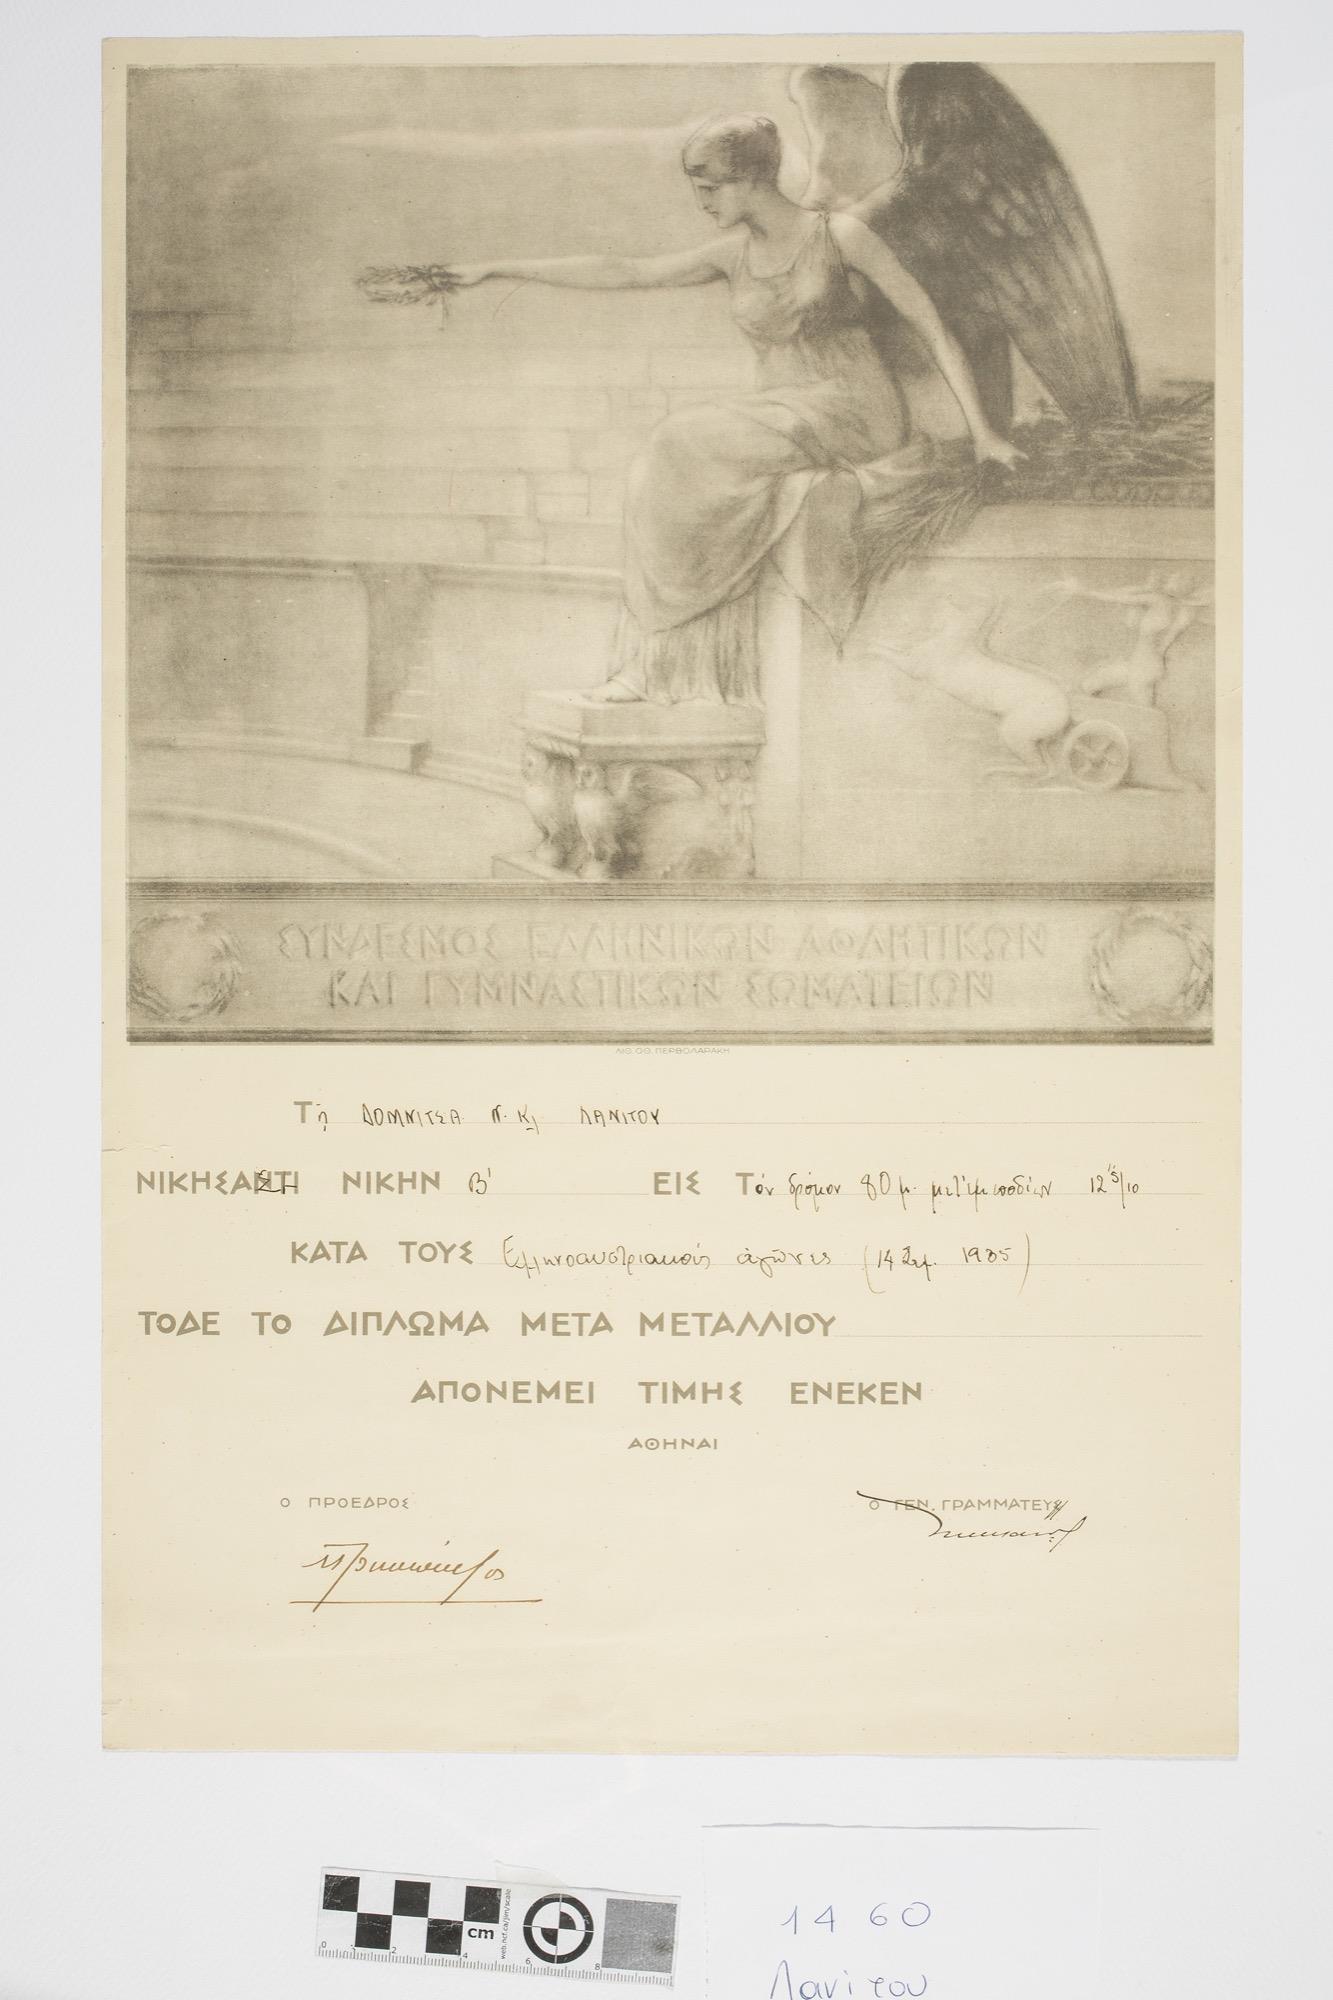 ΣΥΝΔΕΣΜΟΣ ΕΛΛΗΝΙΚΩΝ ΑΘΛΗΤΙΚΩΝ
ΚΑΙ ΓΥΜΝΑΣΤΙΚΩΝ ΣΩΜΑΤΕΙΩΝ
ΛΙΘ. ΟΘ. ΠΕΡΒΟΛΑΡΑΚΗ
Τῇ ΔΟΜΝΙΤΣΑ Ν. Κλ ΛΑΝΙΤΟΥ
ΝΙΚΗΣΑΣΗ ΝΙΚΗΝ Β' ΕΙΣ Τὸν δρόμον 80 μ. μετ' ἐμποδίων 12 5/10
ΚΑΤΑ ΤΟΥΣ Ἑλληνοαυστριακοὺς ἀγῶνες (14 Σεπ. 1935)
ΤΟΔΕ ΤΟ ΔΙΠΛΩΜΑ ΜΕΤΑ ΜΕΤΑΛΛΙΟΥ
ΑΠΟΝΕΜΕΙ ΤΙΜΗΣ ΕΝΕΚΕΝ
ΑΘΗΝΑΙ
Ο ΠΡΟΕΔΡΟΣ
Ο ΓΕΝ. ΓΡΑΜΜΑΤΕΥΣ
cm
web.ncf.ca/jim/scale
0 1 2 4 6 8
1460
Λανίτου